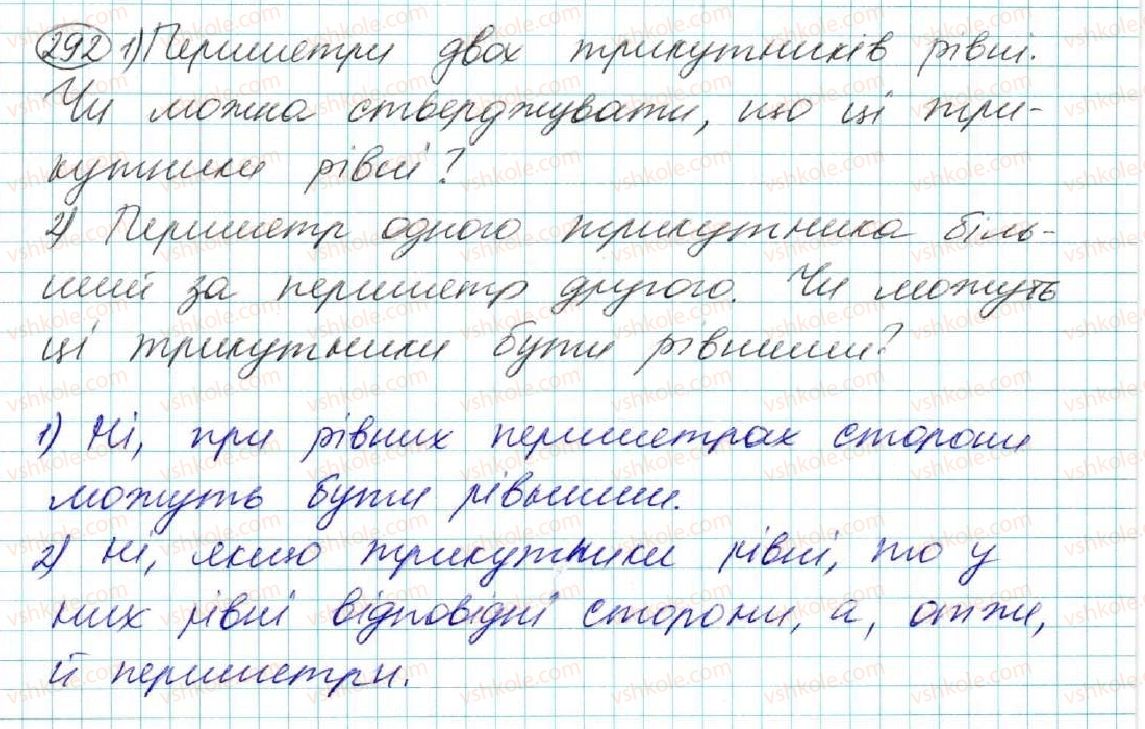 292 1) Периметри двох трикутників рівні.
Чи можна стверджувати, що ці три-
кутники рівні?
2) Периметр одного трикутника біль-
ший за периметр другого. Чи можуть
ці трикутники бути рівними?
1) Ні, при рівних периметрах сторони
можуть бути рівними.
2) Ні, якщо трикутники рівні, то у
них рівні відповідні сторони, а, отже,
й периметри.